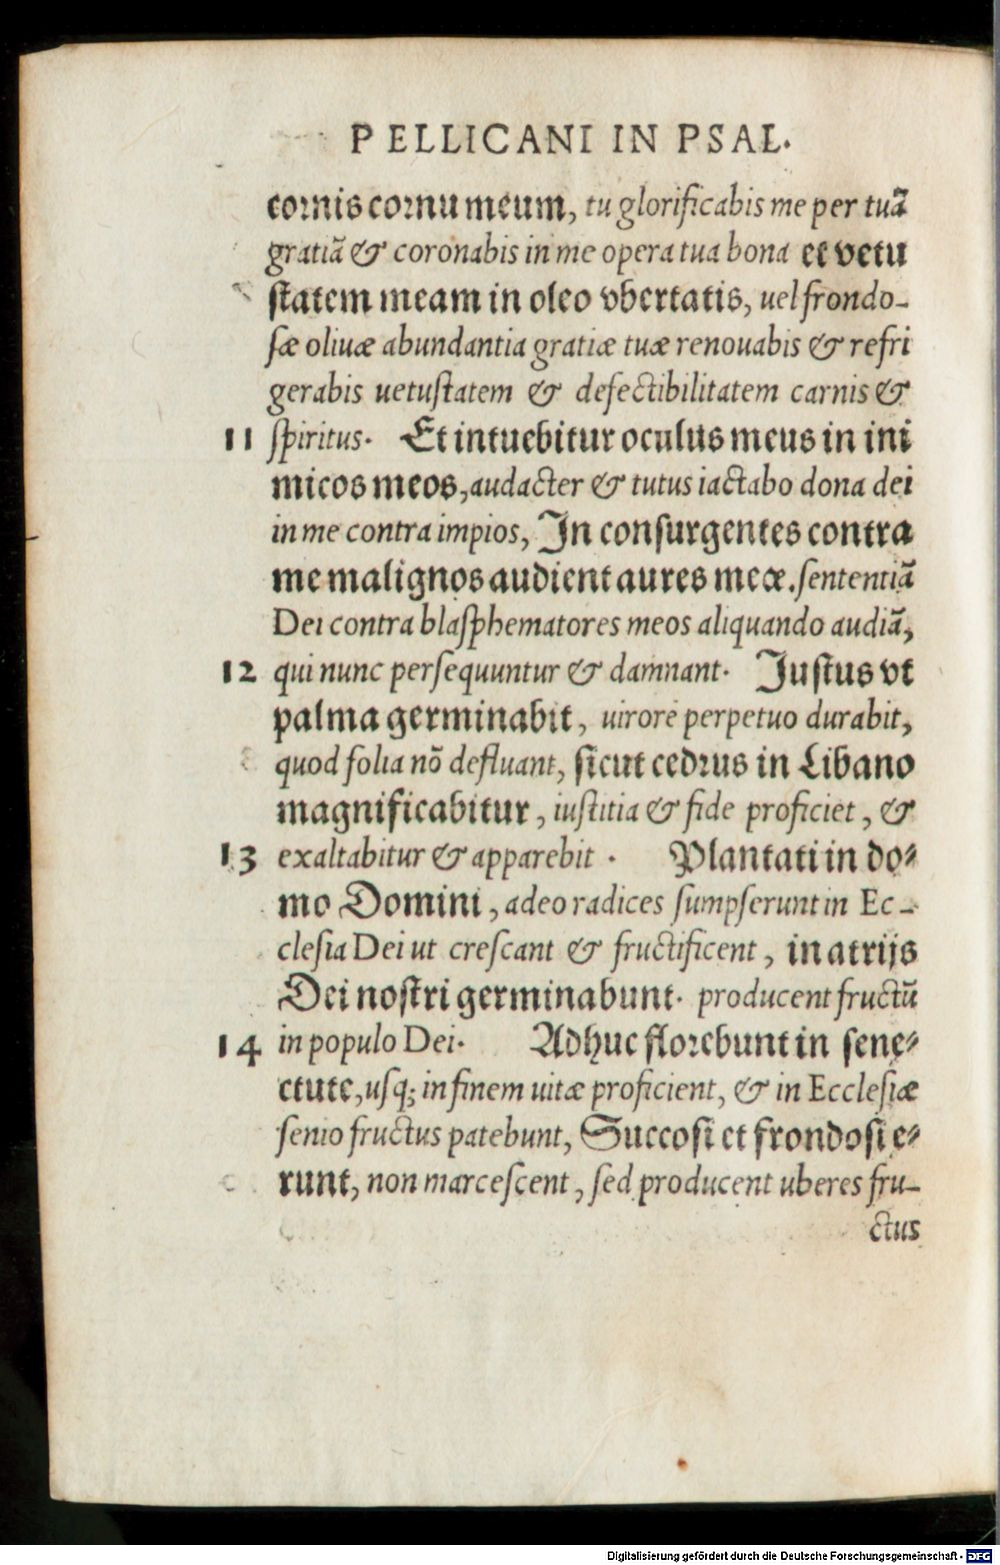 PELLICANI IN PSAL.
cornis cornu meum, tu glorificabis me per tuã
gratiã & coronabis in me opera tua bona et vetu
ſtatem meam in oleo vbertatis, uel frondo-
ſæ oliuæ abundantia gratiæ tuæ renouabis & refri
gerabis uetuſtatem & defectibilitatem carnis &
11 ſpiritus. Et intuebitur oculus meus in ini
micos meos, audacter & tutus iactabo dona dei
in me contra impios, In conſurgentes contra
me malignos audient aures meæ. ſententiã
Dei contra blaſphematores meos aliquando audiã,
12 qui nunc perſequuntur & damnant. Juſtus vt
palma germinabit, uirore perpetuo durabit,
quod folia nõ defluant, ſicut cedrus in Libano
magnificabitur, iuſtitia & fide proficiet, &
13 exaltabitur & apparebit. Plantati in do-
mo Domini, adeo radices ſumpſerunt in Ec-
cleſia Dei ut creſcant & fructificent, in atrijs
Dei noſtri germinabunt. producent fructũ
14 in populo Dei. Adhuc florebunt in ſene-
ctute, uſq; in finem uitæ proficient, & in Eccleſiæ
ſenio fructus patebunt, Succoſi et frondoſi e-
runt, non marceſcent, ſed producent uberes fru-
ctus
Digitalisierung gefördert durch die Deutsche Forschungsgemeinschaft - DFG